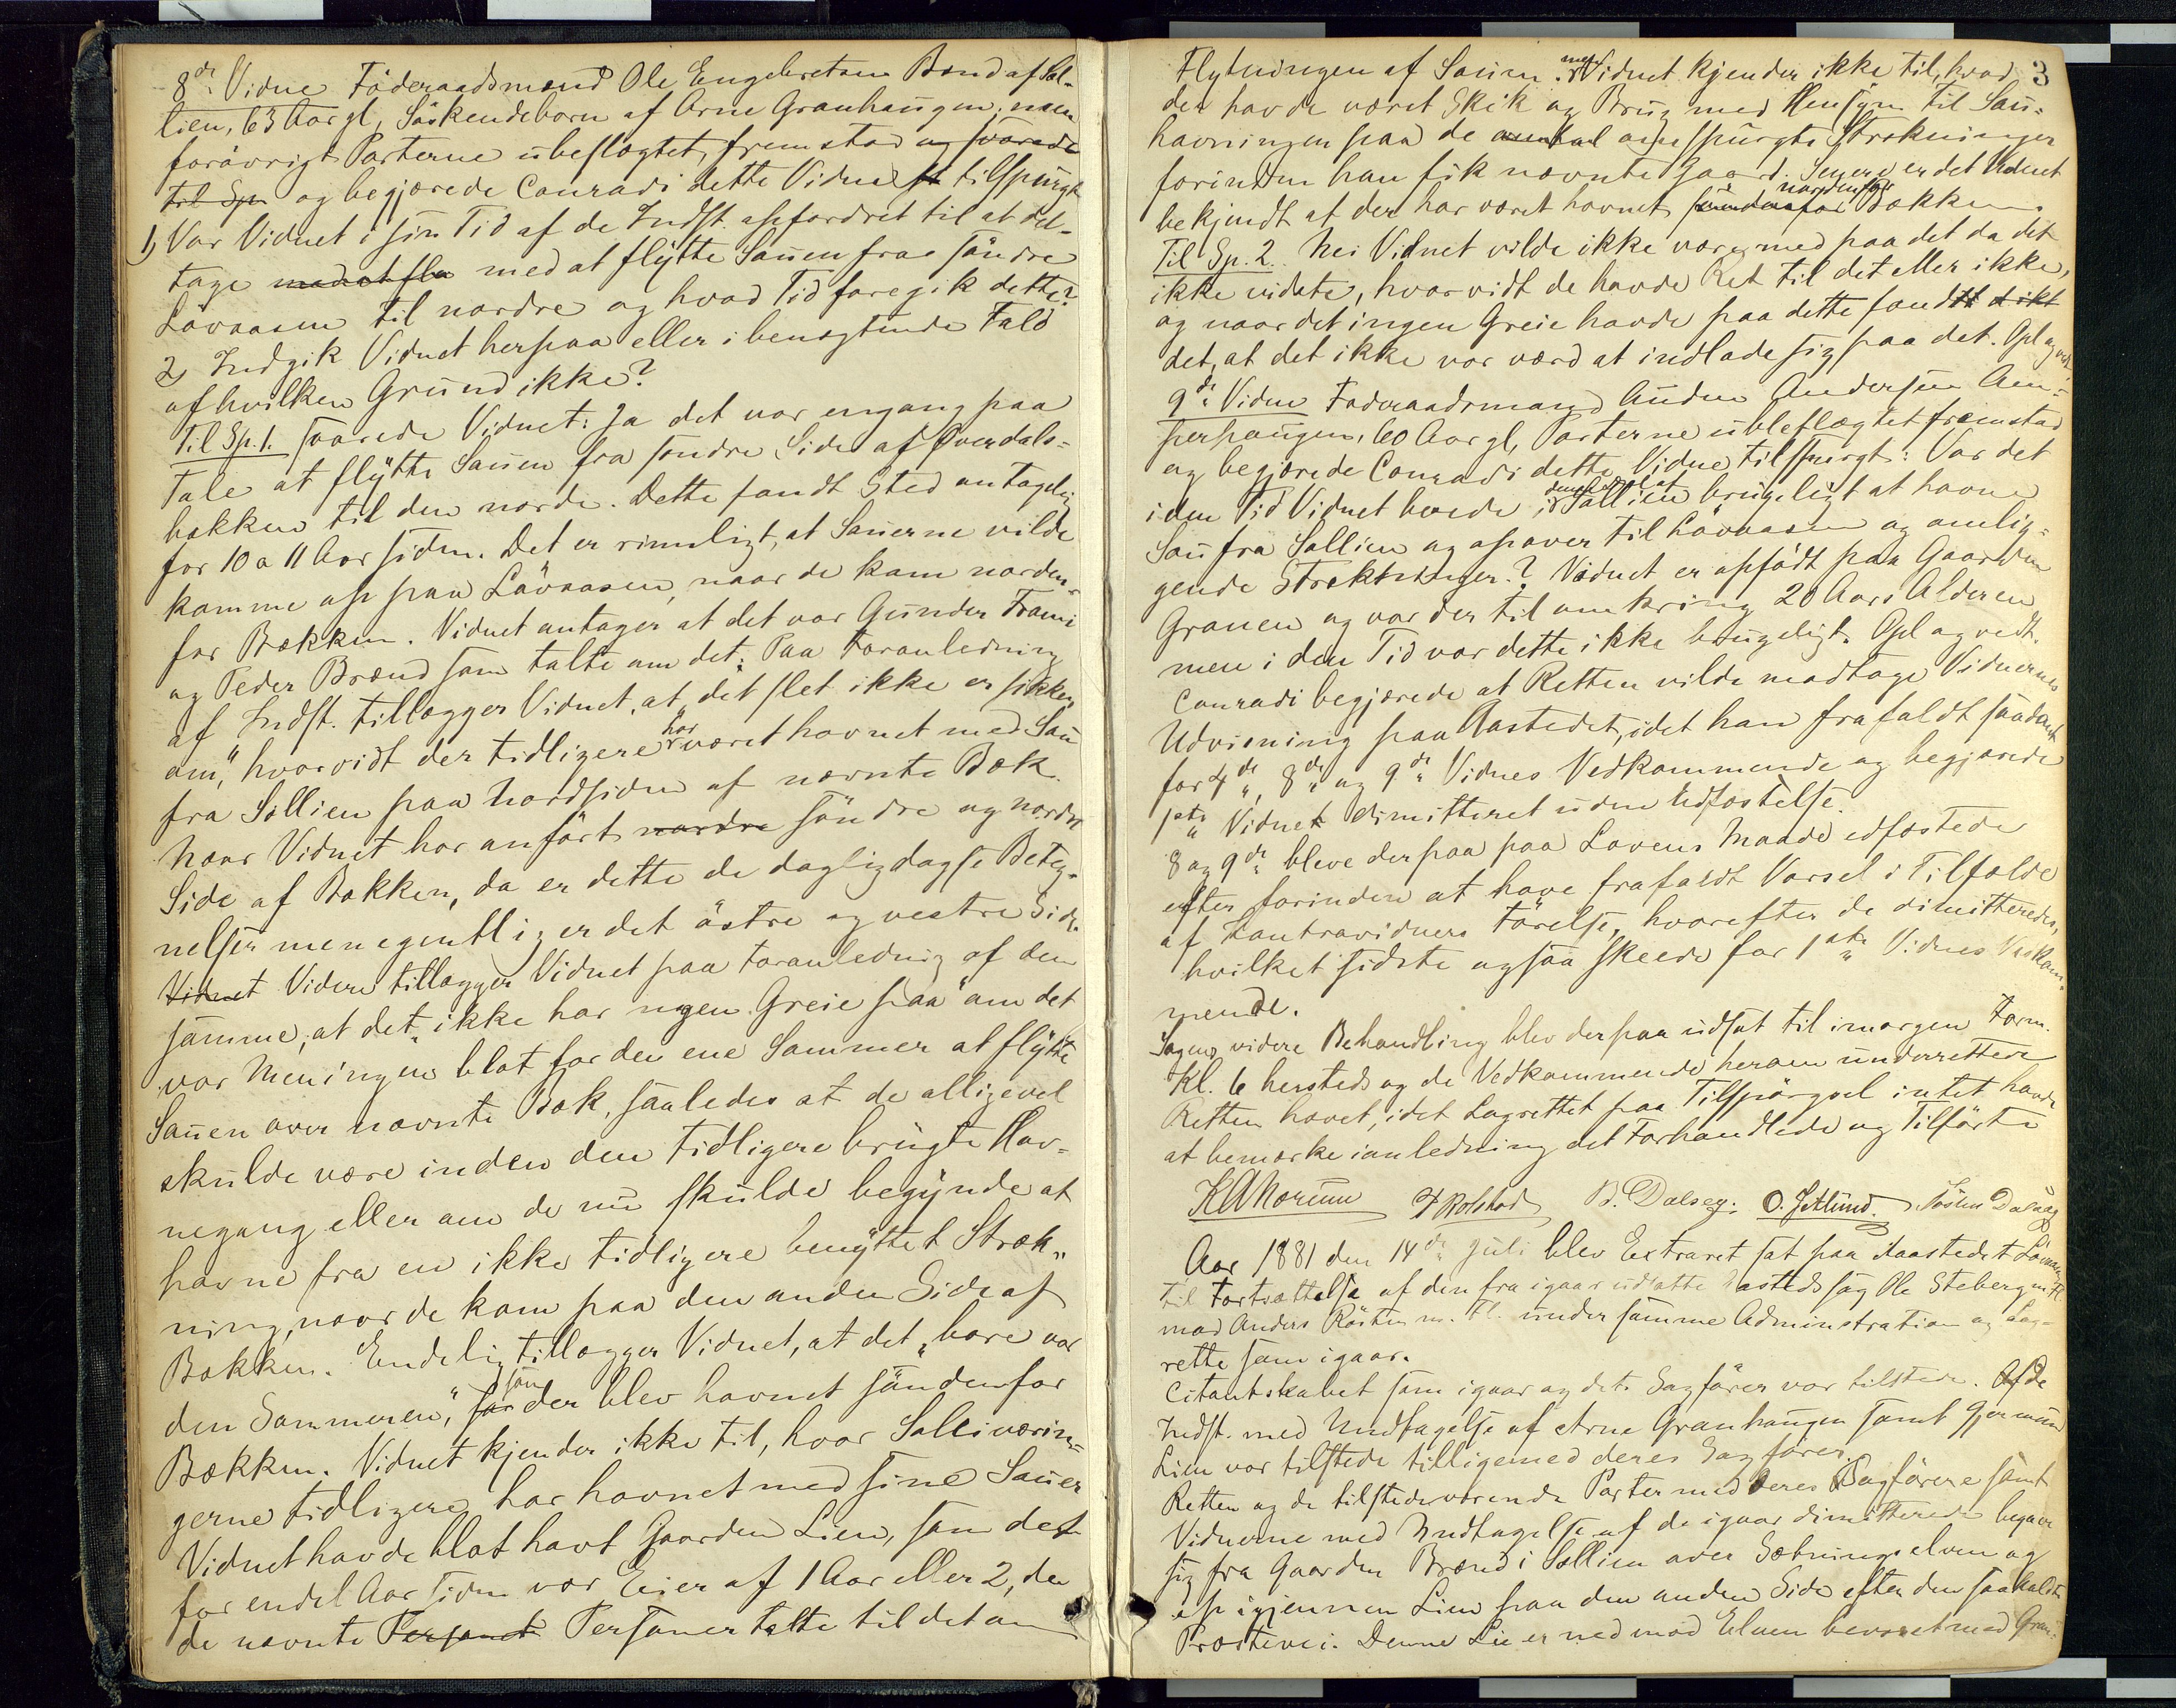 8de Vidne Föderaadsmand Ole Engebretsen Brænd af Sol-
lien, 63 Aar gl, Söskendebarn af Arne Granhaugen, men
forövrigt Parterne ubeslægtet, fremstod og svarede
til Sp. og begjærede Conradi dette Vidne tilspurgt
1, Var Vidnet i sin Tid af de Indst. opfordret til at del-
tage med at fly med at flytte Sauen fra söndre
Lövaasen til nordre og hvad Tid foregik dette?
2, Indgik Vidnet herpaa eller i benægtende Fald
af hvilken Grund ikke?
Til Sp. 1. svarede Vidnet: Ja det var engang paa
Tale at flytte Sauen fra söndre Side af Øverdals-
bækken til den nordre. Dette fandt Sted antagelig
for 10 a 11 Aar siden. Det er rimeligt, at Sauerne vilde
komme op paa Lövaasen, naar de kom norden-
for Bækken. Vidnet antager at det var Gunder
og Peder Brænd som talte om det. Paa Foranledning
af Indst. tillægger Vidnet, at det slet ikke er sikker
om, "hvorvidt der tidligere har været havnet med Sau
fra Sollien paa Nordsiden af nævnte Bæk.
Naar Vidnet har anfört nordre söndre og nordre
Side af Bækken, da er dette de dagligdagse Beteg-
nelser men egentlig er det östre og vestre Side.
Vidnet Videre tillægger Vidnet paa Foranledning af den
samme, at det "ikke har nogen Greie paa" om det
var Meningen blot for den ene Sommer at flytte
Sauen over nævnte Bæk, saaledes at de alligevel
skulde være inden den tidligere brugte Hav-
negang eller om de nu skulde begynde at
havne fra en ikke tidligere benyttet Stræk-
ning, naar de kom paa den anden Side af
Bækken. Endelig tillægger Vidnet, at det "bare var
den Sommeren", for som der blev havnet söndenfor
Bækken. Vidnet kjender ikke til, hvor Solliværin-
gerne tidligere har havnet med sine Sauer
Vidnet havde blot havt Gaarden Lien, som det
for endel Aar siden var Eier af 1 Aar eller 2, da
de nævnte Personer Personer talte til det om
3
Flytningen af Sauen. men Vidnet kjender ikke til, hvad
der havde været Skik og Brug med Hensyn til Sau-
havningen paa de omhand omspurgte Strækninger
forinden han fik nævnte Gaard. Senere er det Vidnet
bekjendt at der har været havnet söndenfor nordenfor Bækken.
Til Sp. 2. Nei Vidnet vilde ikke være med paa det da det
ikke vidste, hvorvidt de havde Ret til det eller ikke,
og naar det ingen Greie havde paa dette fandt ikke
det, at det ikke var værd at indlade sig paa det. Opl og vedt
9de Vidne Föderaadsmand Auden Andersen
haugen, 60 Aar gl, Parterne ubeslægtet fremstod
og begjærede Conradi dette Vidne tilspurgt: Var det
i den Tid Vidnet boede i Sollien brugeligt at havne
Sau fra Sollien og opover til Lövaasen og omlig-
gende Strækninger? Vidnet er opfödt paa Gaarden
Granen og var der til omkring 20 Aars Alderen
men i den Tid var dette ikke brugeligt. Opl og vedt.
Conradi begjærede at Retten vilde modtage Vidnernes
Udvisning paa Aastedet, idet han frafaldt saadant
for 4de, 8de og 9de Vidnes Vedkommende og begjærede
1ste Vidnet dimitteret uden Edfæstelse.
8 og 9de bleve derpaa paa Lovens Maade edfæstede
efter forinden at have frafaldt Varsel i Tilfælde
af Kontravidners Förelse, hvorefter de dimitteredes,
hvilket sidste ogsaa skeede for 1ste Vidnes Vedkom-
mende.
Sagens videre Behandling blev derpaa udsat til imorgen Form.
Kl. 6 hersteds og de Vedkommende herom underrettede
Retten hævet, idet Lagrettet paa Tilspörgsel intet havde
at bemærke ianledning det Forhandlede og Tilförte
K A Morum P. Rolstad B. Dalseg: O. Jetlund. Tosten Dalseg
Aar 1881 den 14de Juli blev Extraret sat paa Aastedet Lövaasen
til Fortsættelse af den fra igaar udsatte Aastedssag Ole Steberg m fl.
mod Anders Rösten m. fl. under samme Administration og Lag-
rette som igaar.
Citantskabet som igaar og dets Sagförer var tilstede. Af de
Indst. med Undtagelse af Arne Granhaugen samt Gjermund
Lien var tilstede tilligemed deres Sagförer.
Retten og de tilstedeværende Parter med deres Sagförere samt
Vidnerne med Undtagelse af de igaar dimitterede begave
sig fra Gaarden Brænd i Sollien over Sætningselven og
op igjennem Lien paa den anden Side efter den saakaldte
Præstevei. Denne Lie er ned mod Elven bevoxet med Gran-